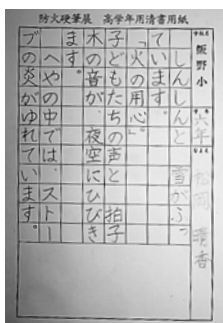 防火硬筆展　高学年用清書用紙
学校名
飯野小
学年
六年
なまえ
香
しんしんと　雪がふっ
ています。
「火の用心。」
子どもたちの声と　拍子
木の音が、夜空にひびき
ます。
へやの中では、ストー
ブの炎がゆれています。